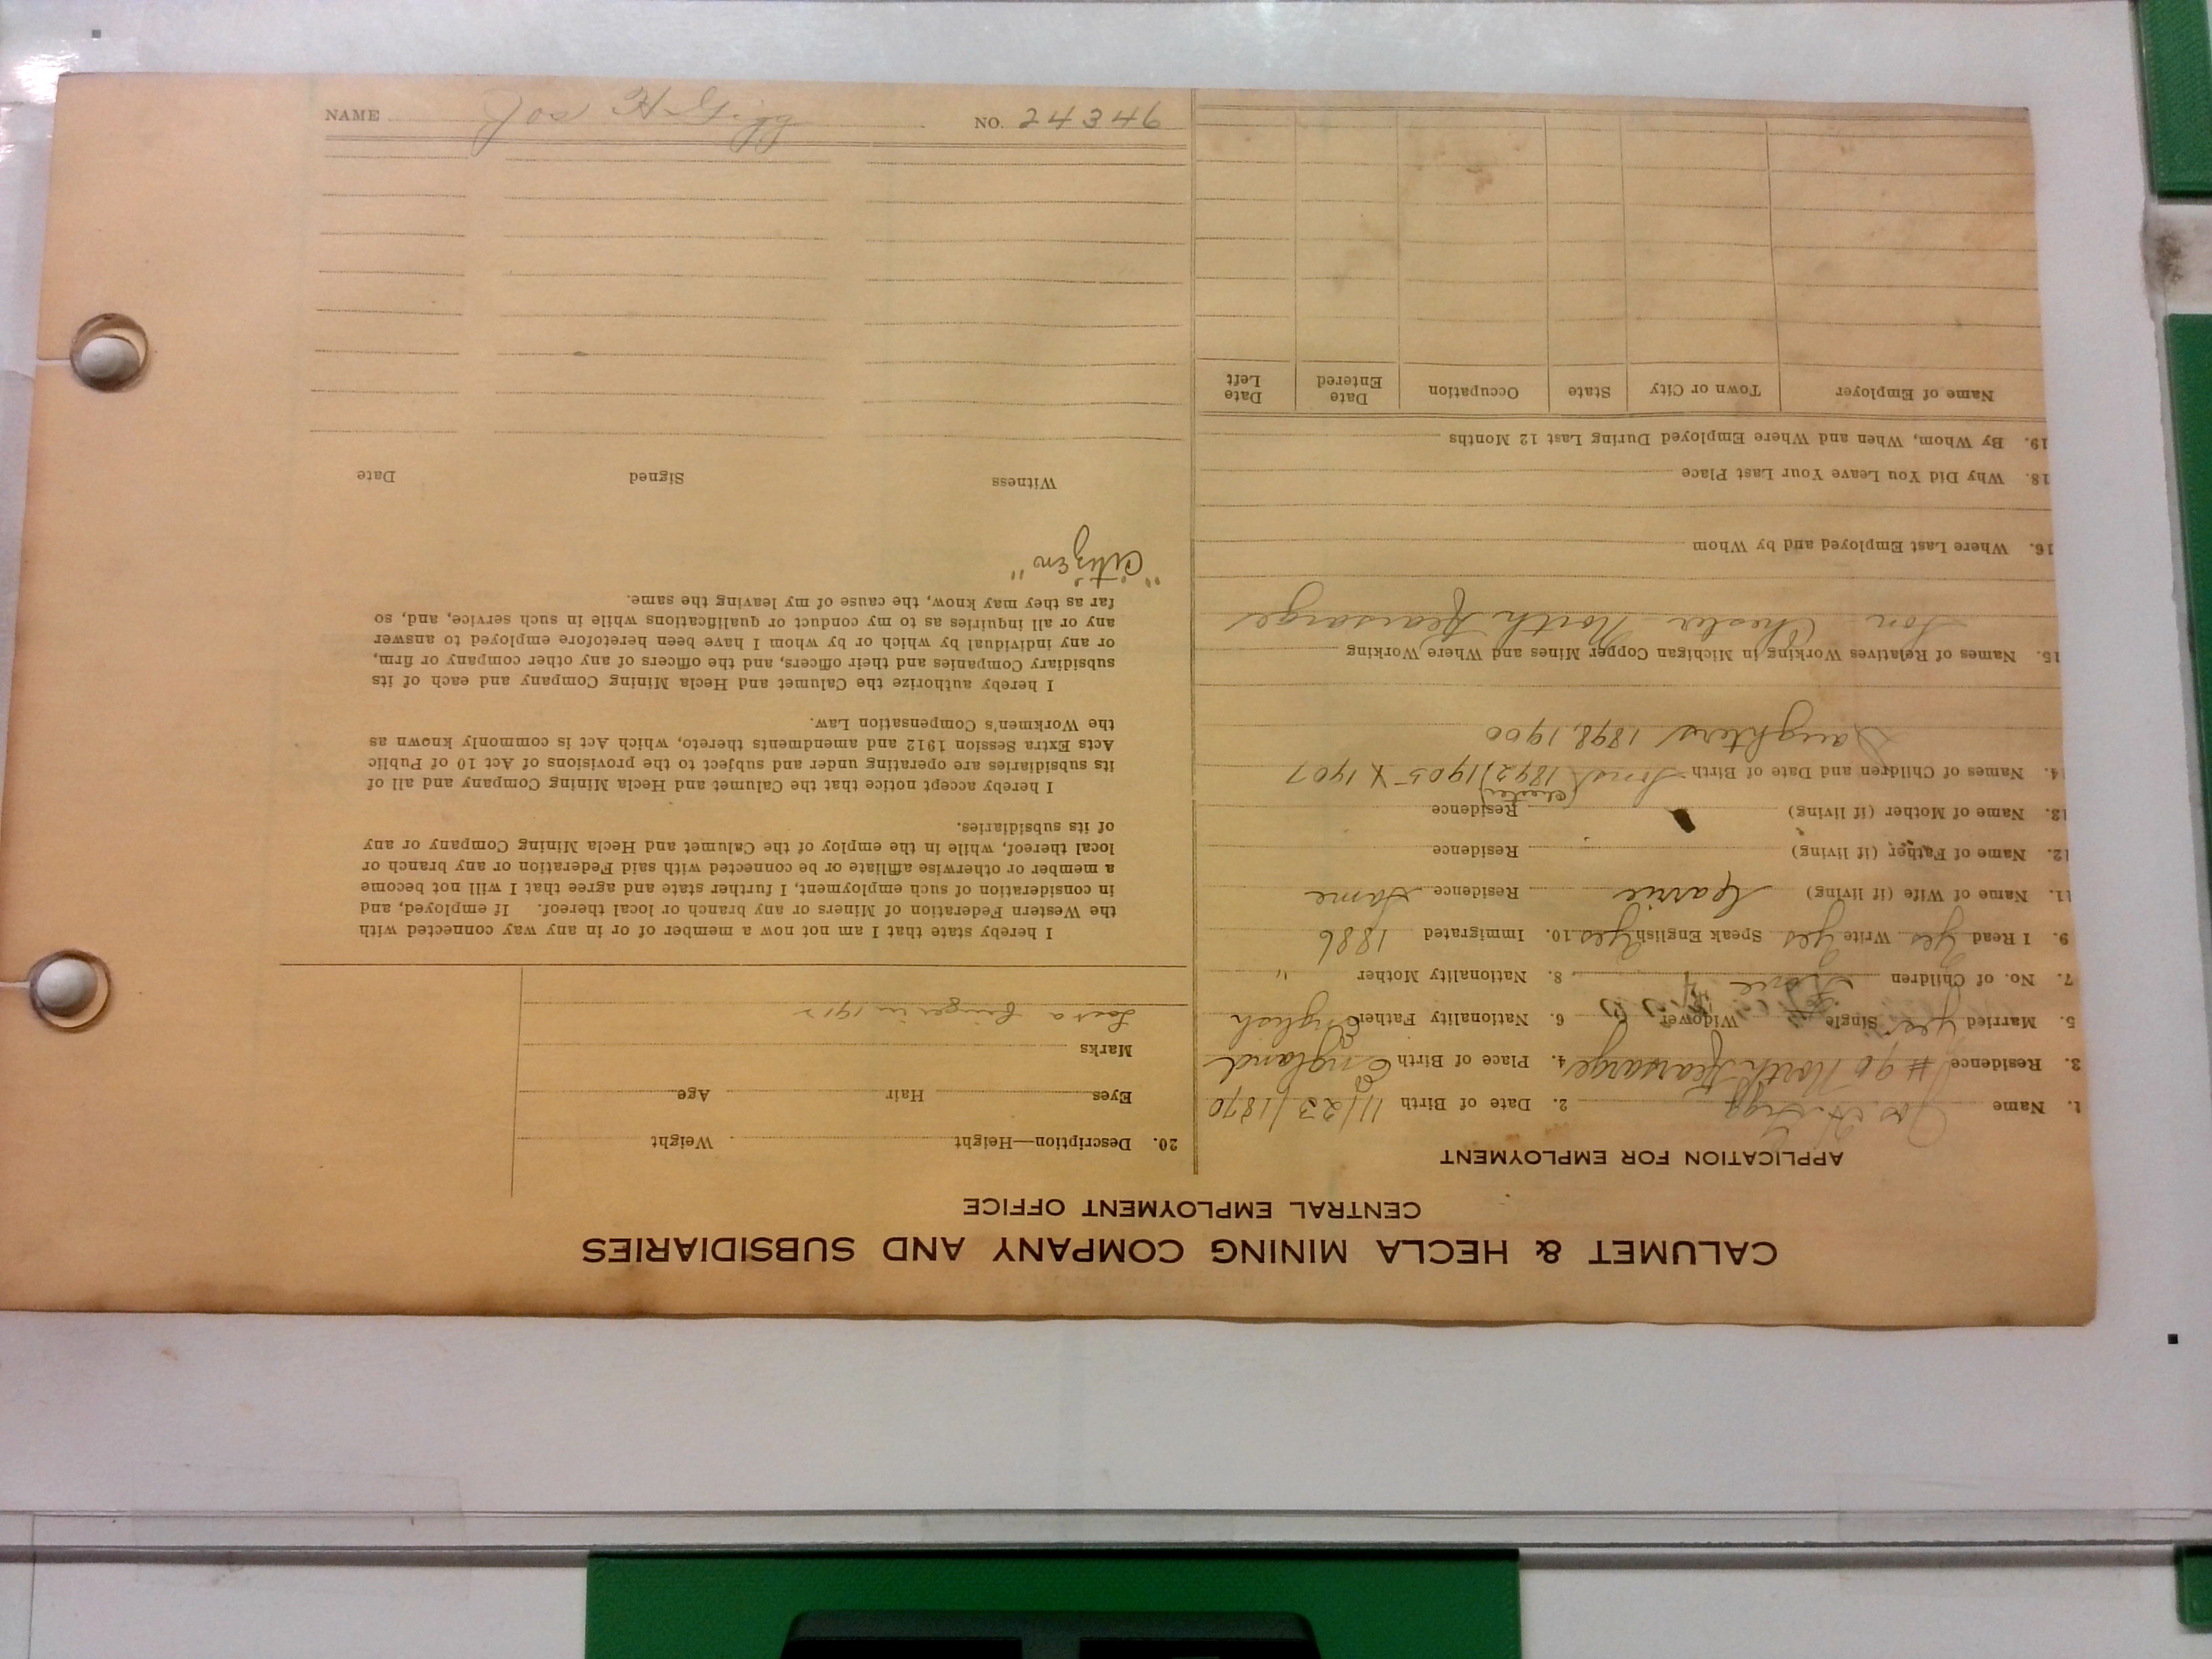 CALUMET & HECLA MINING COMPANY AND SUBSIDIARIES
CENTRAL EMPLOYMENT OFFICE
APPLICATION FOR EMPLOYMENT
1. Name Jos. H. Gigg 2. Date of Birth 11/23/1870
3. Residence #90 North Kearsarge 4. Place of Birth England
5. Married Yes Single Widower 6. Nationality Father English
7. No. of Children 8. Nationality Mother "
9. I Read Yes Write Yes Speak English Yes 10. Immigrated 1886
11. Name of Wife (if living) Carrie Residence Same
12. Name of Father (if living) Residence
13. Name of Mother (if living) Residence
(Chester)
14. Names of Children and Date of Birth Sons 1892, 1905 & 1907
Daughters 1898, 1900
15. Names of Relatives Working in Michigan Copper Mines and Where Working
Son Chester North Kearsarge
16. Where Last Employed and by Whom
18. Why Did You Leave Your Last Place
19. By Whom, When and Where Employed During Last 12 Months
Name of Employer Town or City State Occupation Date Entered Date Left
20. Description—Height Weight
Eyes Hair Age
Marks
Lost a finger in 1912
I hereby state that I am not now a member of or in any way connected with
the Western Federation of Miners or any branch or local thereof. If employed, and
in consideration of such employment, I further state and agree that I will not become
a member or otherwise affiliate or be connected with said Federation or any branch or
local thereof, while in the employ of the Calumet and Hecla Mining Company or any
of its subsidiaries.
I hereby accept notice that the Calumet and Hecla Mining Company and all of
its subsidiaries are operating under and subject to the provisions of Act 10 of Public
Acts Extra Session 1912 and amendments thereto, which Act is commonly known as
the Workmen's Compensation Law.
I hereby authorize the Calumet and Hecla Mining Company and each of its
subsidiary Companies and their officers, and the officers of any other company or firm,
or any individual by which or by whom I have been heretofore employed to answer
any or all inquiries as to my conduct or qualifications while in such service, and, so
far as they may know, the cause of my leaving the same.
"Citizen"
Witness Signed Date
NAME Jos H Gigg NO. 24346